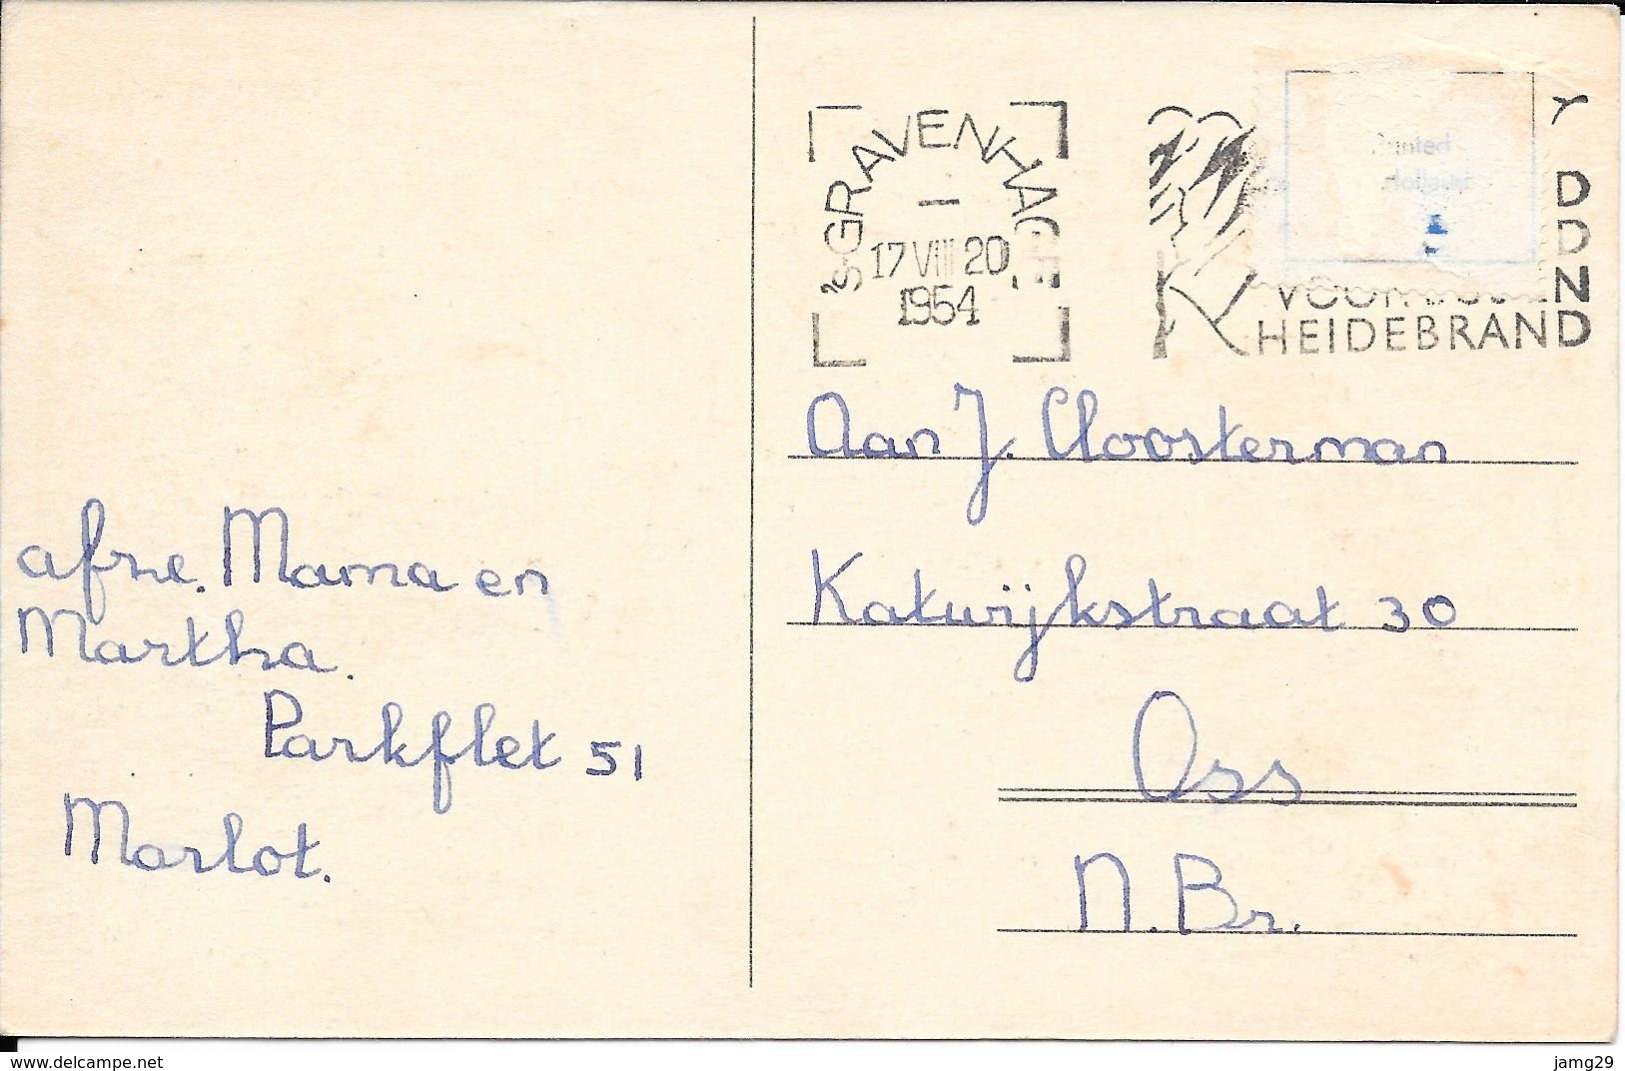 afze. Mama en
Martha.
Parkflet 51
Marlot.
'sGRAVENHAGE
17 VIII 20
1954
HEIDEBRAND
Aan J. Cloosterman
Katwijkstraat 30
Oss
N. Br.
www.delcampe.net
jamg29